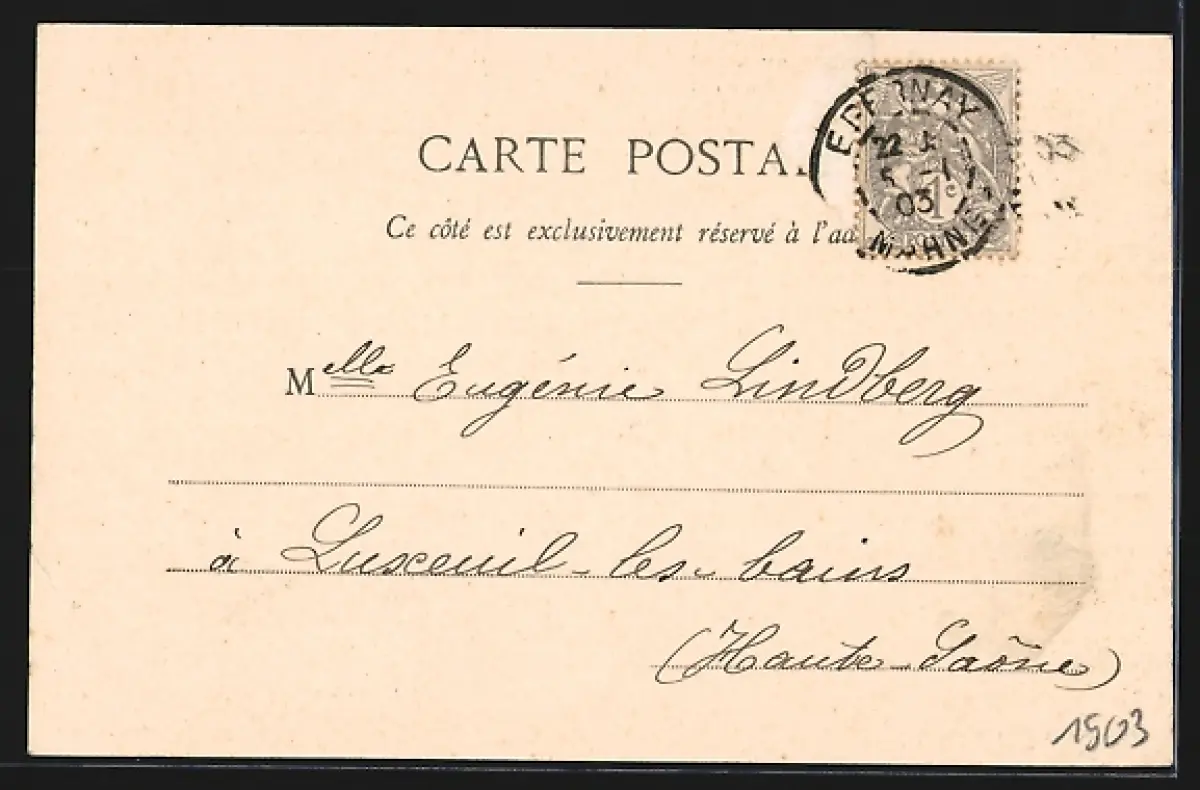 CARTE POSTA
Ce côté est exclusivement réservé à l'ad
EPERNAY
22
5 -1
03
MARNE
1c
Melle Eugénie Lindberg
à Luxeuil-les-bains
(Haute-Saône)
1903